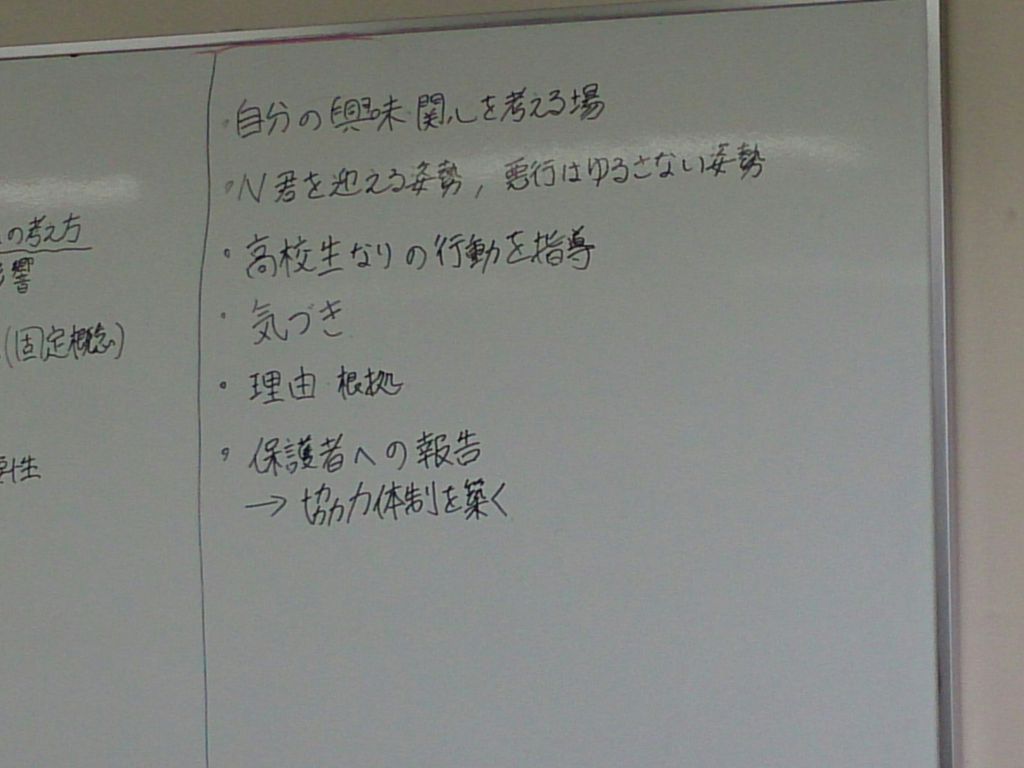 の考え方
影響
(固定概念)
性
・自分の興味関心を考える場
・N君を迎える姿勢, 悪行はゆるさない姿勢
・高校生なりの行動を指導
・気づき
・理由 根拠
・保護者への報告
→協力体制を築く